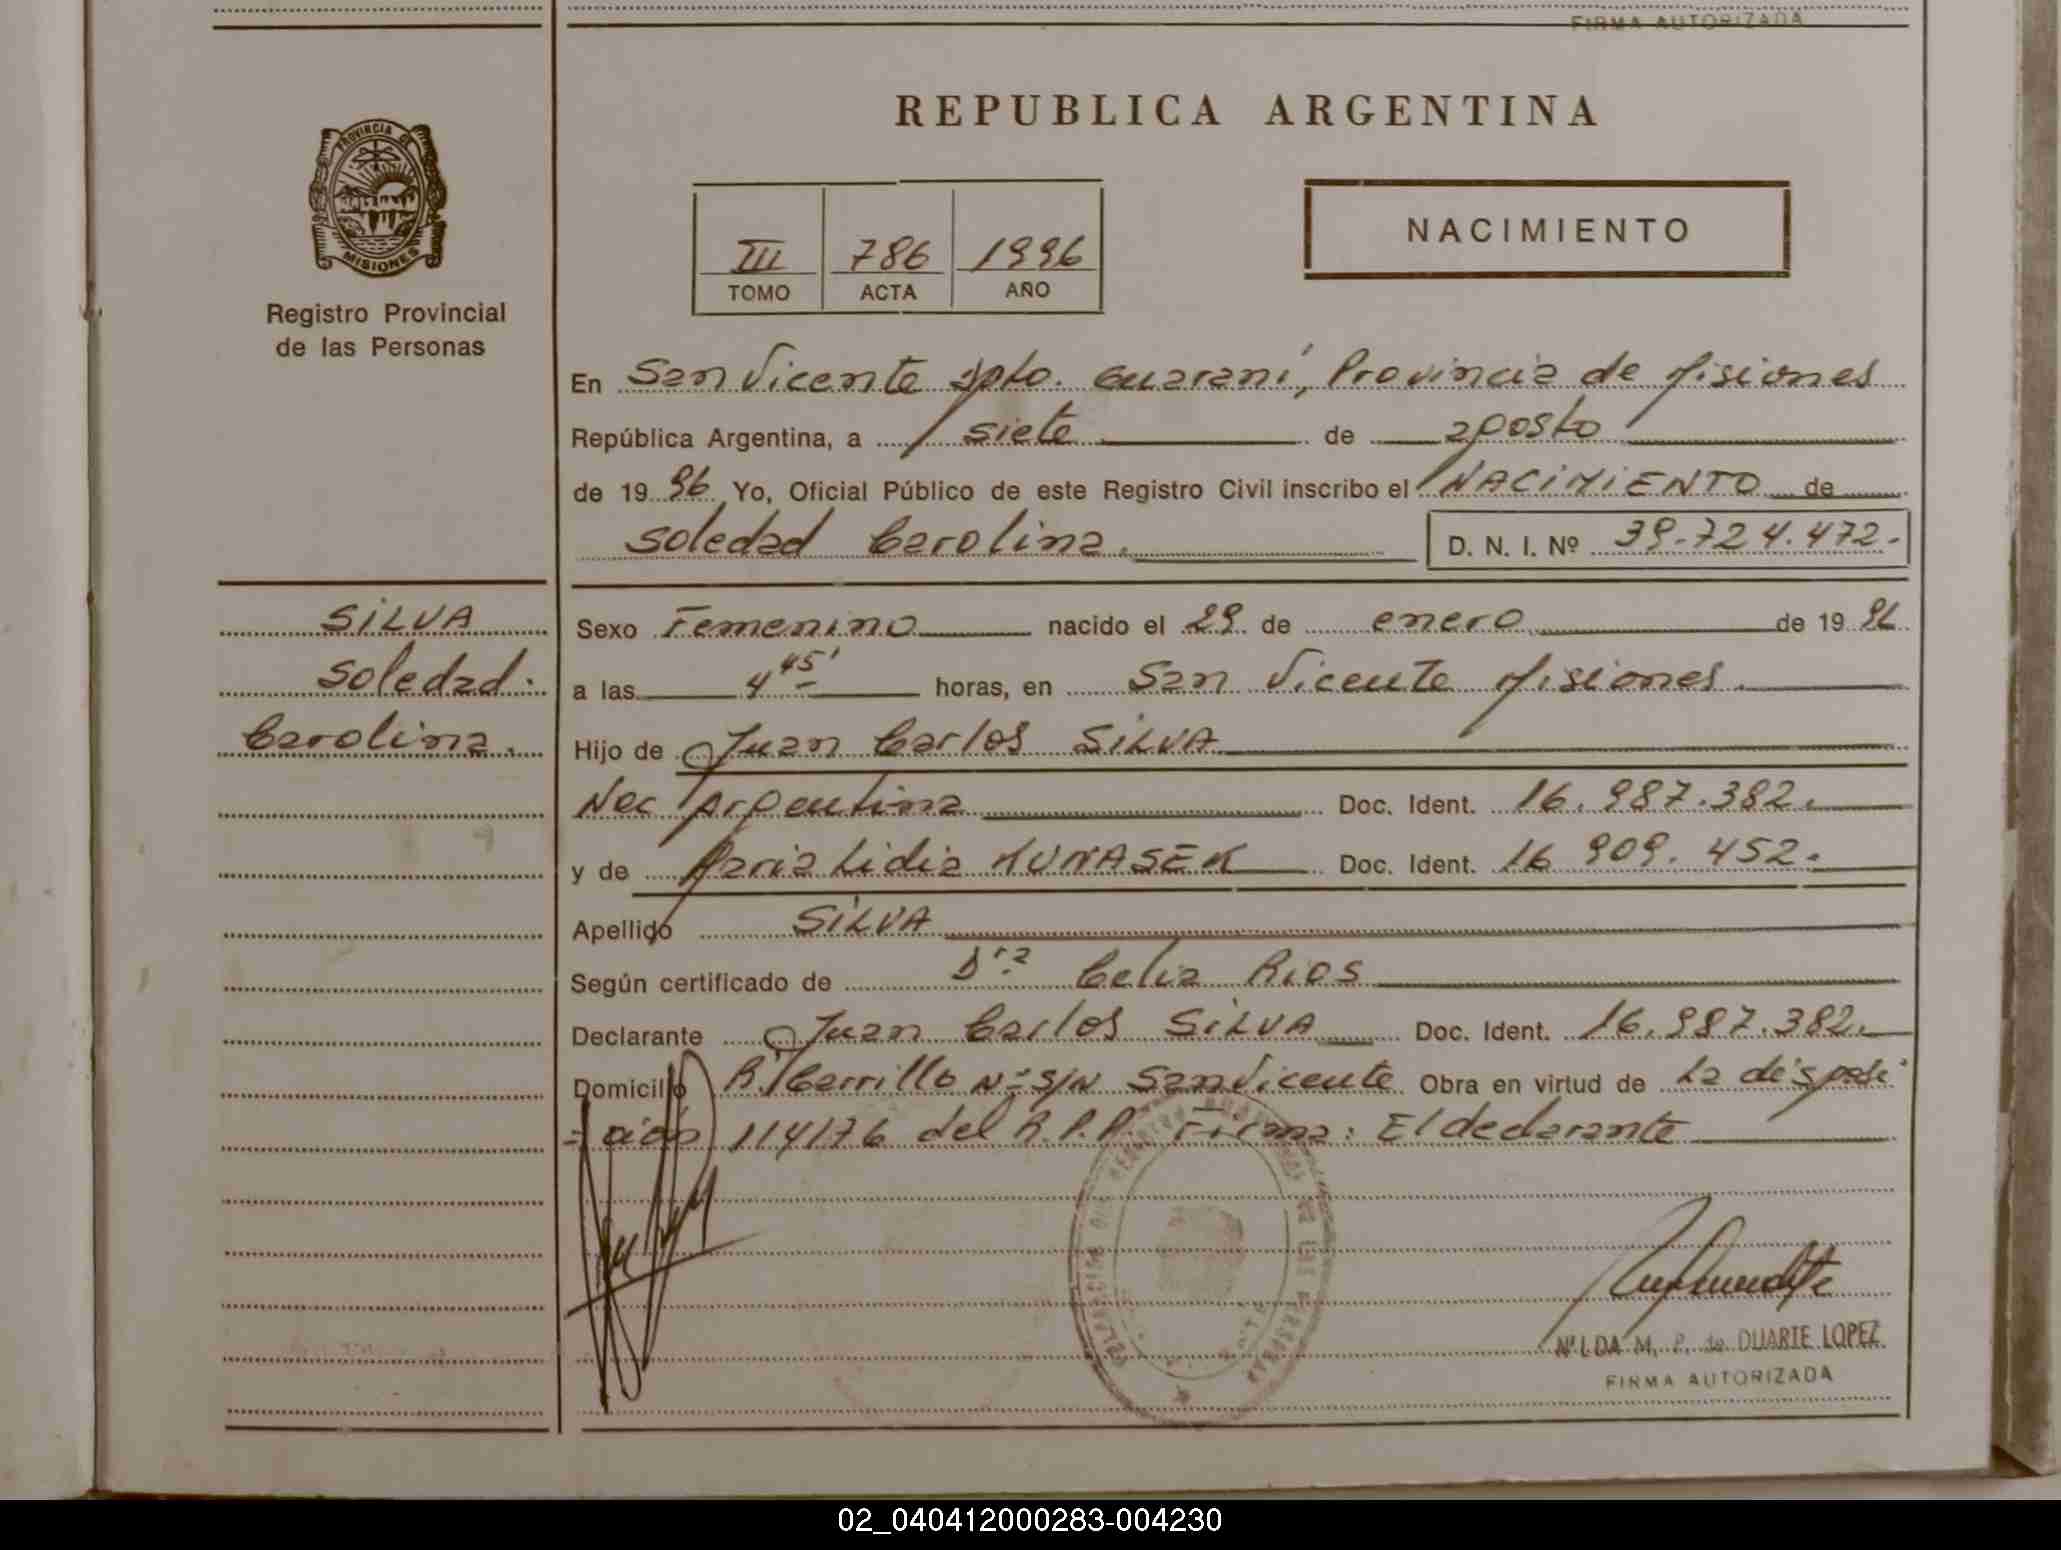 FIRMA AUTORIZADA
REPUBLICA ARGENTINA
PROVINCIA DE
MISIONES
Registro Provincial
de las Personas
III 786 1996
TOMO ACTA AÑO
NACIMIENTO
En San Vicente Dpto. Guaraní, Provincia de Misiones
República Argentina, a siete de agosto
de 19 96 Yo, Oficial Público de este Registro Civil inscribo el NACIMIENTO de
Soledad Carolina. D. N. I. Nº 39.724.472.
SILVA
Soledad.
Carolina.
Sexo Femenino nacido el 29 de enero de 19 96
a las 4 45' horas, en San Vicente Misiones.
Hijo de Juan Carlos SILVA
Nac Argentina Doc. Ident. 16.987.382.
y de Maria Lidia KUNASEK Doc. Ident. 16 909. 452.
Apellido SILVA
Según certificado de Dra Celia Rios
Declarante Juan Carlos SILVA Doc. Ident. 16.987.382.
Domicilio R. Carrillo Nº S/N San Vicente Obra en virtud de La disposi
=ción 114176 del R.P.P. Firma: El declarante
DE LAS PERSONAS
M. P. de DUARTE LOPEZ
FIRMA AUTORIZADA
02_040412000283-004230